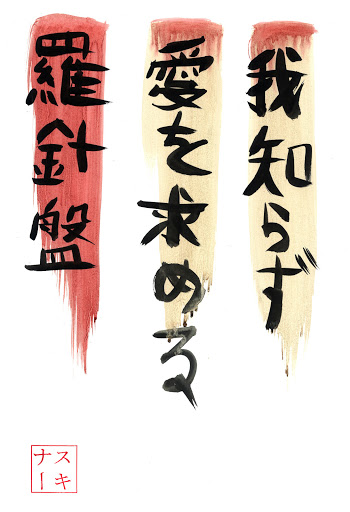 我知らず
愛を求める
羅針盤
スキ
ナー